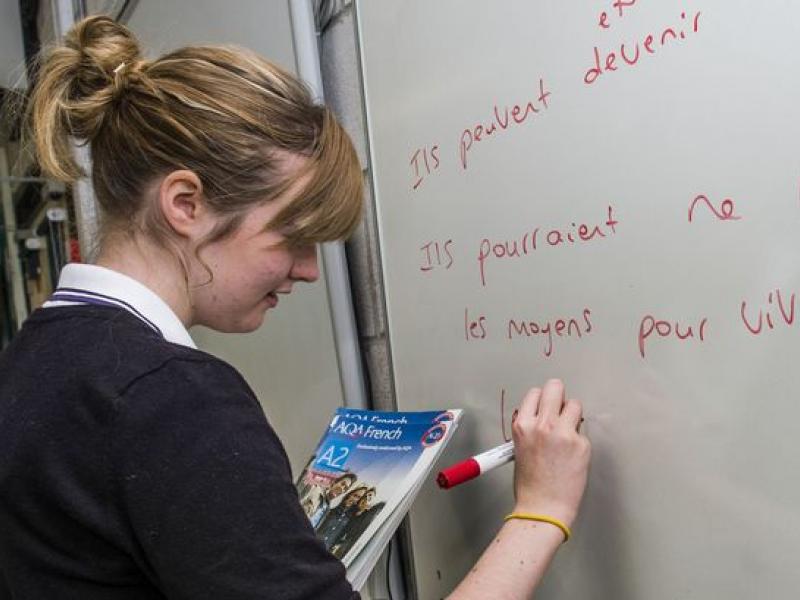 et
devenir
Ils peuvent
Ils pourraient ne
les moyens pour viv
AQA French
AQA French
A2